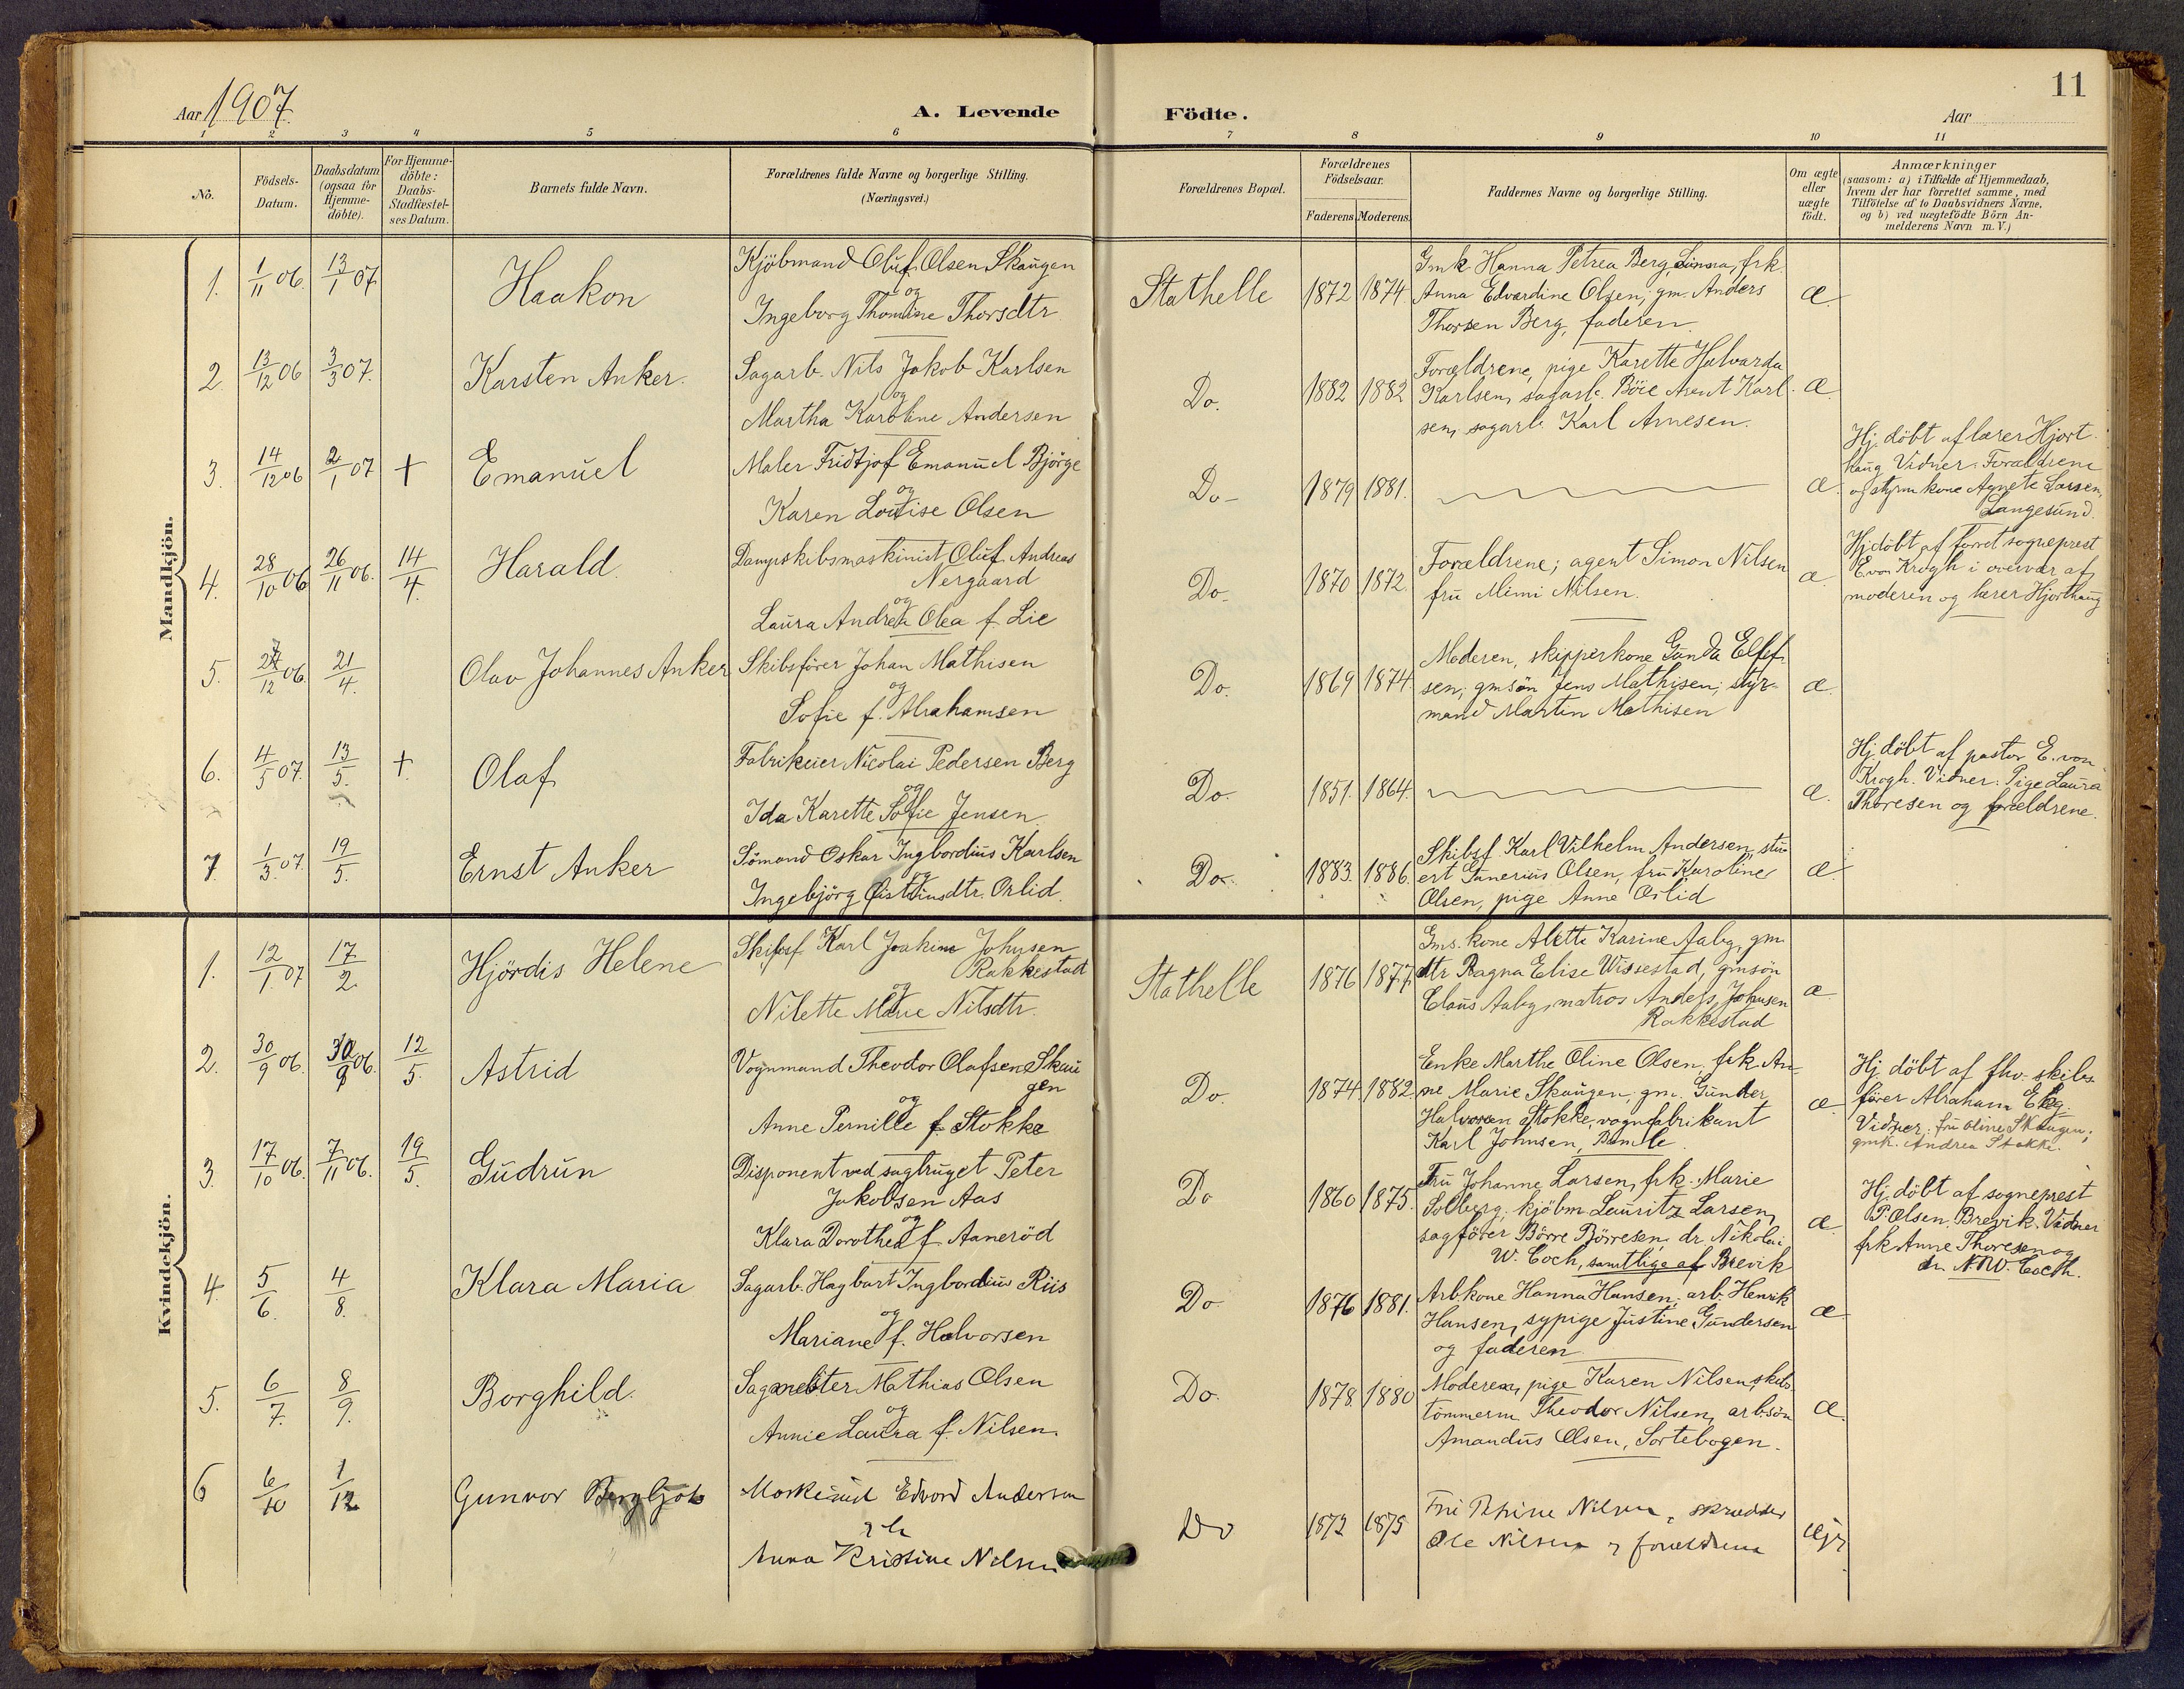 11
Aar 1907.
A. Levende Födte.
Aar
1 2 3 4 5 6 7 8 9 10 11
No.
Födsels-
Datum.
Daabsdatum
(ogsaa for
Hjemme-
döbte).
For Hjemme-
döbte:
Daabs-
Stadfæstel-
ses Datum.
Barnets fulde Navn.
Forældrenes fulde Navne og borgerlige Stilling.
(Næringsvei.)
Forældrenes Bopæl.
Forældrenes
Födselsaar.
Faderens. Moderens.
Faddernes Navne og borgerlige Stilling.
Om ægte
eller
uægte
födt.
Anmærkninger
(saasom: a) i Tilfælde af Hjemmedaab,
hvem der har forrettet samme, med
Tilföielse af to Daabsvidners Navne,
og b) ved uægtefödte Börn An-
melderens Navn m. V.)
Mandkjön.
1. 1/11 06. 13/1 07 Haakon
Kjöbmand Oluf Olsen Skaugen
og
Ingeborg Thomine Thorsdtr
Stathelle 1872 1874.
Gmk Hanna Petrea Berg, frk.
Anna Edvardine Olsen; gm. Anders
Thorsen Berg, faderen.
æ.
2. 13/12 06 3/3 07. Karsten Anker.
Sagarb. Nils Jakob Karlsen
og
Martha Karoline Andersen
Do. 1882 1882
Forældrene, pige Karette Halvarda
Karlsen, sagarb. Böie Arent Karl-
sen, sagarb. Karl Arnesen.
æ.
3. 14/12 06 2/1 07 + Emanuel
Maler Fridtjof Emanuel Bjørge
og
Karen Lovise Olsen
Do- 1879 1881.
æ.
Hj. döbt af lærer Hjort-
haug Vidner: Forældrene
og styrm kone Agnete Larsen,
Langesund.
4. 28/10 06 26/11 06. 14/4. Harald.
Dampskibsmaskinist Oluf Andreas
Nergaard
og
Laura Andrea Olea f. Lie
Do- 1870 1872.
Forældrene; agent Simon Nilsen
fru Mimi Nilsen.
æ.
Hj döbt af forret sogneprest
E. von Krogh i overvær af
moderen og lærer Hjorthaug
5. 27/12 06. 21/4. Olav Johannes Anker
Skibsfører Johan Mathisen
og
Sofie f. Abrahamsen
Do. 1869 1874.
Moderen, skipperkone Gunda Ellef-
sen; gmsön Jens Mathisen; styr-
mand Martin Mathisen
æ.
6. 4/5 07. 13/5. + Olaf
Fabrikeier Nicolai Pedersen Berg
og
Ida Karette Sofie Jensen
Do. 1851. 1864.
æ.
Hj. döbt af pastor E. von
Krogh. Vidner: Pige Laura
Thoresen og forældrene.
7. 1/3. 07. 19/5. Ernst Anker
Sömand Oskar Ingbordius Karlsen
og
Ingebjörg Östensdtr. Orlid.
Do. 1883. 1886.
Skibsf. Karl Vilhelm Andersen, stu-
ert Olsen, fru Karoline
Olsen, pige Anne Orlid
æ.
Kvindekjön.
1. 12/1. 07 17/2. Hjördis Helene
Skibsf. Karl Joakim Johnsen
Rakkestad
og
Nilette Marie Nilsdtr.
Stathelle 1876 1877.
Gms. kone Alette Karine Aaby, gm.
dtr Ragna Elise Wissestad, gmsön
Claus Aaby, matros Anders Johnsen
Rakkestad
æ
2. 30/9 06. 30/9 06. 12/5. Astrid
Vognmand Theodor Olafsen Skau
gen
og
Anne Pernille f. Stokke
Do. 1874. 1882.
Enke Marthe Oline Olsen, frk An-
ne Marie Skaugen, gm. Gunder
Halvorsen Stokke, vognfabrikant
Karl Johnsen, Bamle
æ
Hj. döbt af fhv. skibs-
fører Abraham Eeg
Vidner: fru Oline Skaugen;
gmk. Andrea Stokke.
3. 17/10 06. 7/11 06. 19/5. Gudrun
Disponent ved sagbruget Peter
Jakobsen Aas
og
Klara Dorothea f. Aanerød
Do 1860 1875.
Fru Johanne Larsen, frk. Marie
Solberg, kjöbm. Lauritz Larsen,
sagfører Börre Börresen, dr. Nikolai
W. Coch, samtlige af Brevik
æ
Hj. döbt af sogneprest
P. Olsen, Brevik. Vidner
frk Anne Thoresen og
dr. N. W. Coch.
4. 5/6. 4/8. Klara Maria
Sagarb. Hagbart Ingbordius Riis
og
Mariane f. Halvorsen
Do. 1876 1881.
Arb.kone Hanna Hansen; arb. Henrik
Hansen, sypige Justine Gundersen
og faderen
æ
5. 6/7. 8/9. Borghild.
Sagmester Mathias Olsen
og
Annie Laura f. Nilsen.
Do. 1878. 1880
Moderen, pige Karen Nilsen, skibs-
tömmerm Theodor Nilsen, arb.sön
Amandus Olsen, Sortebogen.
æ.
6 6/10 1/12 Gunvor Bergljot
Maskinist Edvard Andersen
og
Anna Kristine Nilsen
Do 1872 1875
Fru Nilsen, skrædder
Ole Nilsen og forældrene